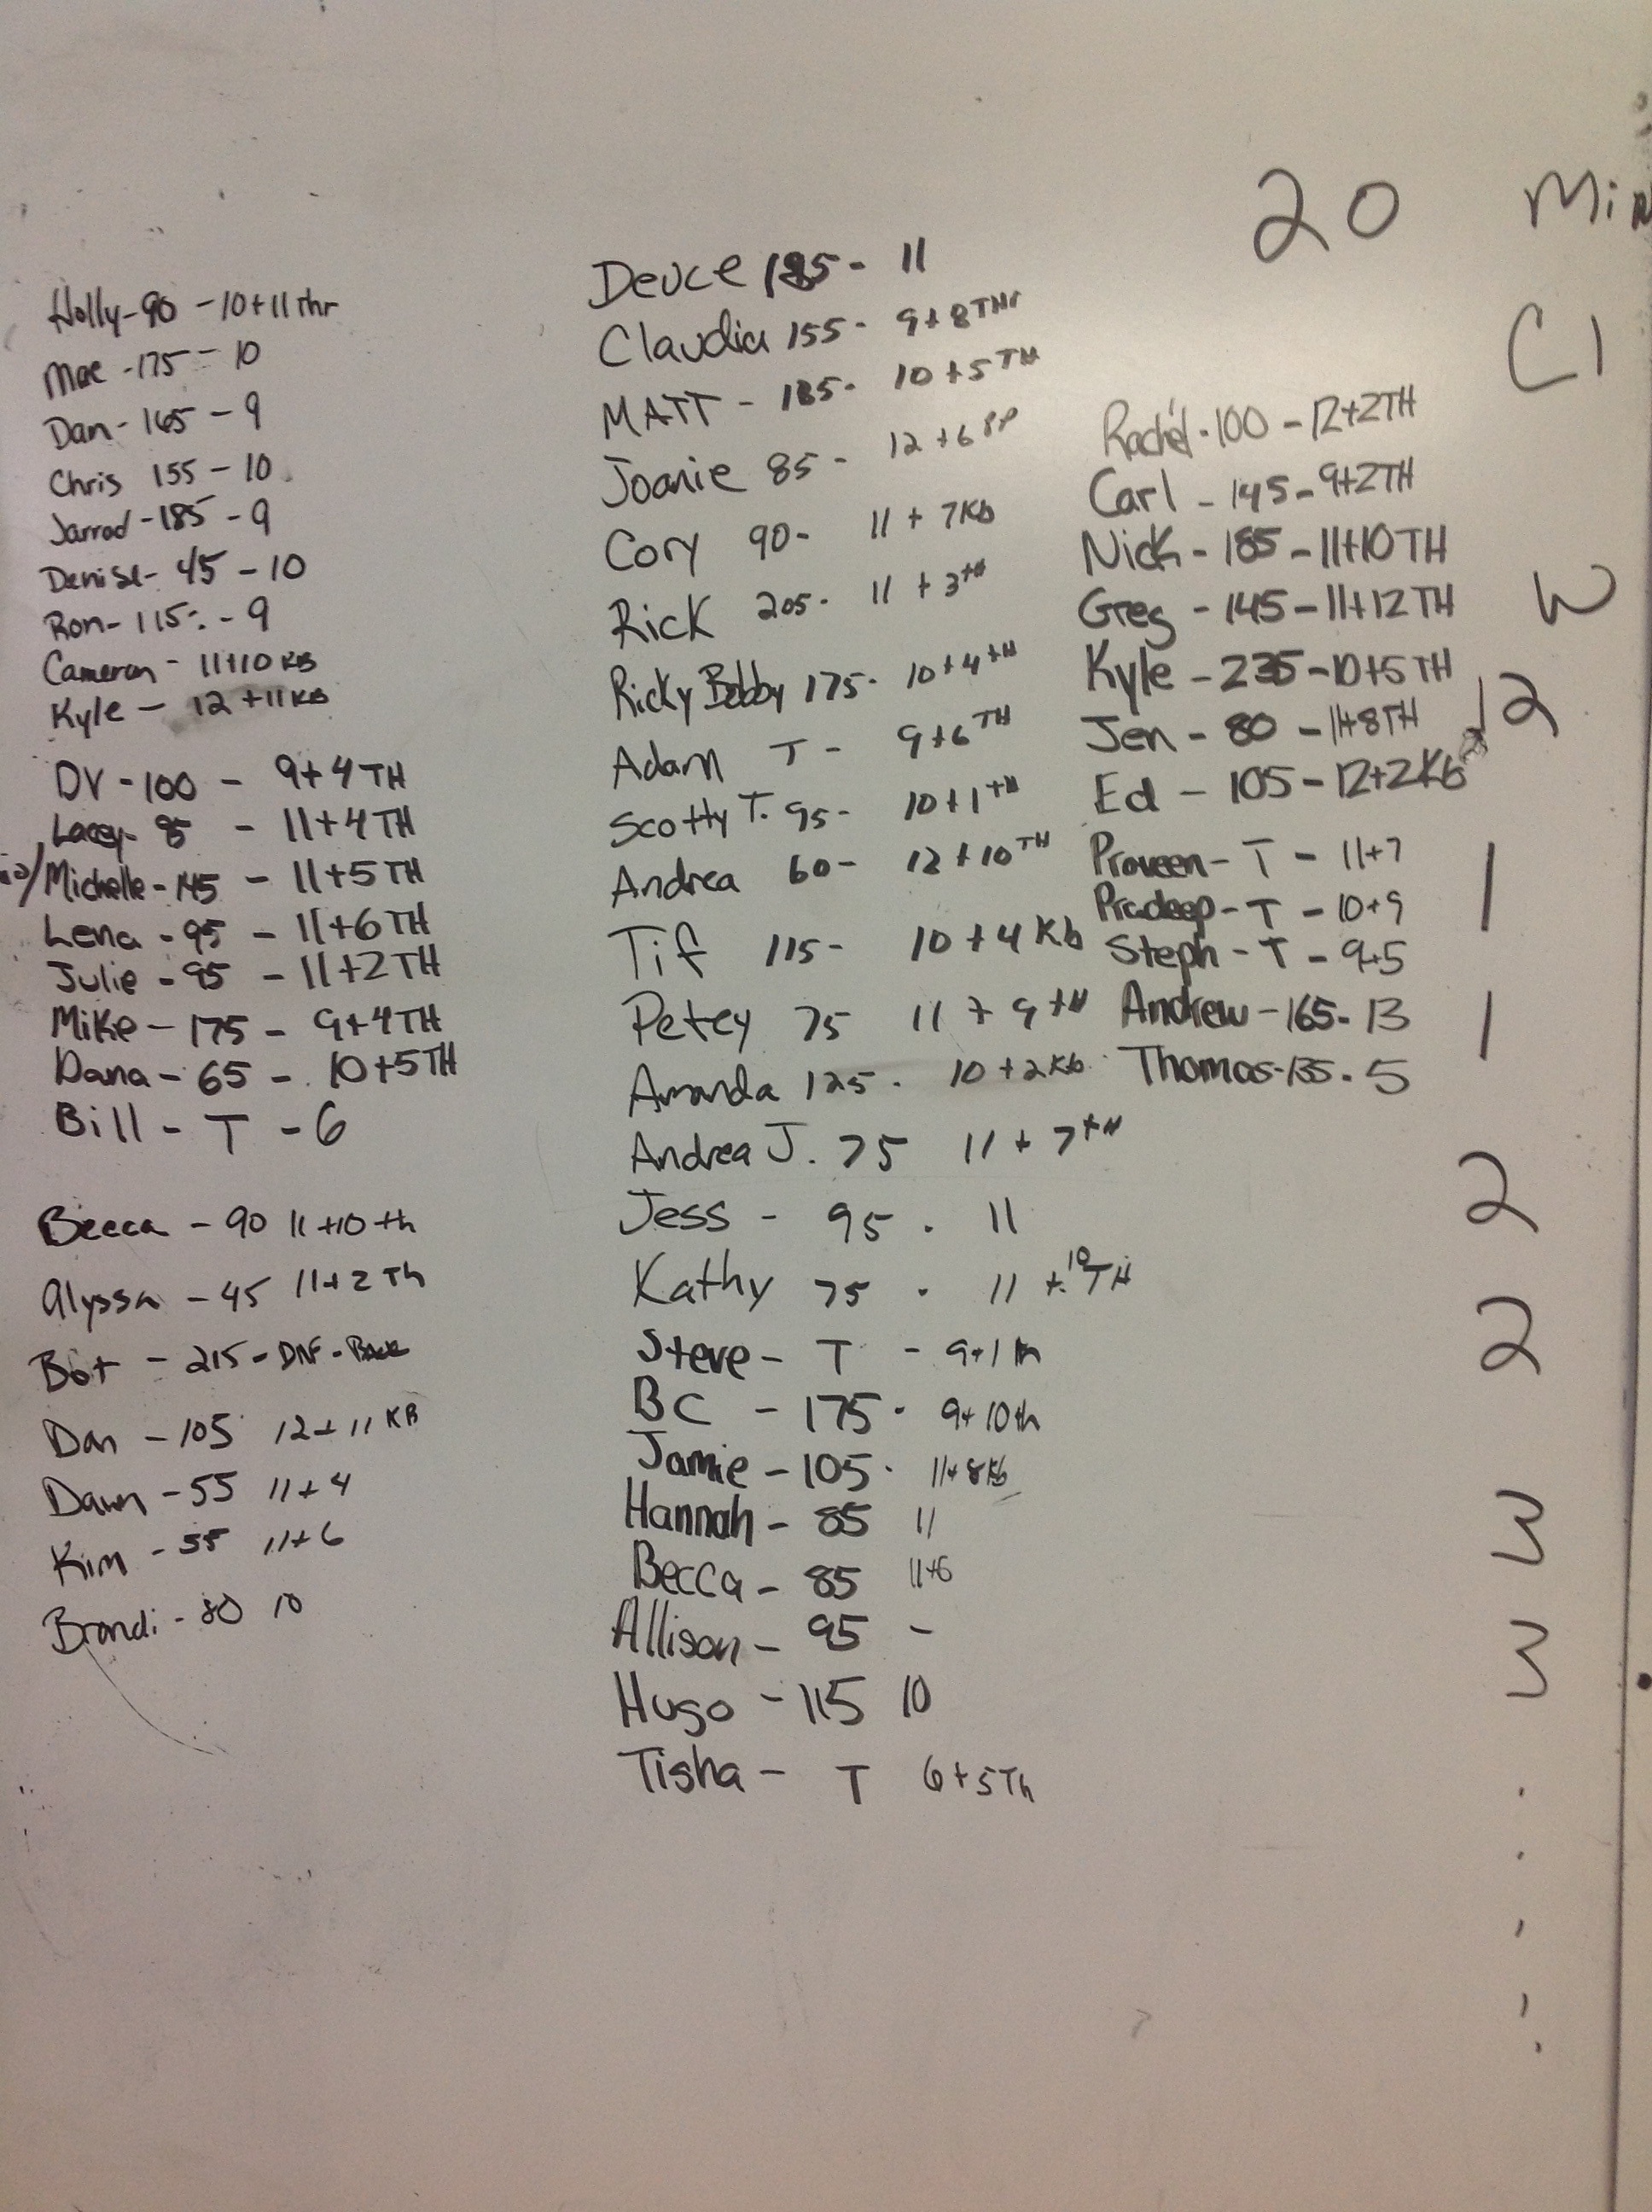 20 Min
Cl
W
12
1
1
2
2
3
3
Holly-90 -10+11thr
Mae -175 - 10
Dan- 165 - 9
Chris 155 - 10
Jarrod -185 - 9
Denise- 45 - 10
Ron- 115 - 9
Cameron - 11+10 KB
Kyle - 12 +11 KB
DV - 100 - 9+4TH
Lacey- 85 - 11+4TH
Michelle - 145 - 11+5TH
Lena - 95 - 11+6TH
Julie - 95 - 11+2TH
Mike - 175 - 9+4TH
Dana - 65 - 10+5TH
Bill - T - 6
Becca - 90 11+10 th
Alyssa - 45 11+2 Th
Bot - 215 - DNF - Back
Dan - 105 12+11 KB
Dawn - 55 11+4
Kim - 55 11+6
Brandi - 80 10
Deuce 185- 11
Claudia 155- 9+8THr
MATT - 185- 10+5TH
Joanie 85 - 12+6
Cory 90- 11 + 7Kb
Rick 205- 11 + 3TH
Ricky Bobby 175- 10+4TH
Adam T - 9+6TH
Scotty T. 95- 10+1TH
Andrea 60- 12+10TH
Tif 115- 10+4 Kb
Petey 75 11 + 9TH
Amanda 125 - 10+2Kb
Andrea J. 75 11 + 7TH
Jess - 95 - 11
Kathy 75 - 11 + 10TH
Steve - T - 9+1 th
BC - 175 - 9+10th
Jamie - 105 - 11+8Kb
Hannah - 85 11
Becca - 85 11+6
Allison - 95 -
Hugo - 115 10
Tisha - T 6+5Th
Rachel - 100 - 12+2TH
Carl - 145 - 9+2TH
Nick - 185 - 11+10TH
Greg - 145 - 11+12TH
Kyle - 235 - 10+5TH
Jen - 80 - 11+8TH
Ed - 105 - 12+2Kb
Praveen - T - 11+7
Pradeep - T - 10+9
Steph - T - 9+5
Andrew - 165 - 13
Thomas - 135 - 5